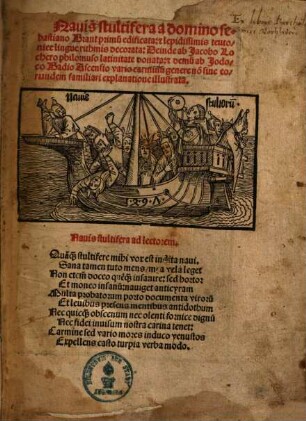 Ex libris
Nauis stultifera a domino se-
bastiano Brant primū edificata: et lepidissimis teuto-
nice lingue rithmis decorata: Deinde ab Jacobo Lo-
chero philomuso latinitate donata: et demū ab Jodo-
co Badio Ascensio vario carminū genere nō sine eo-
rundem familiari explanatione illustrata.
Nauis stultorū.
Nauis stultifera ad lectorem.
Quāq̄ stultifere mihi vox est indita naui,
Sana tamen tuto mens mea vela leget
Non etem̄ docco quēq̄ insanire: sed hortor
Et moneo insanū nauiget anticyram
Multa probatorum porto documenta virorū
Et leuibus presens mentibus antidotum
Nec quicq̄ obscenum nec olenti fornice dignū
Nec fidei inuisum nostra carina tenet:
Carmine sed vario mores induco venustos
Expellens casto turpia verba modo.